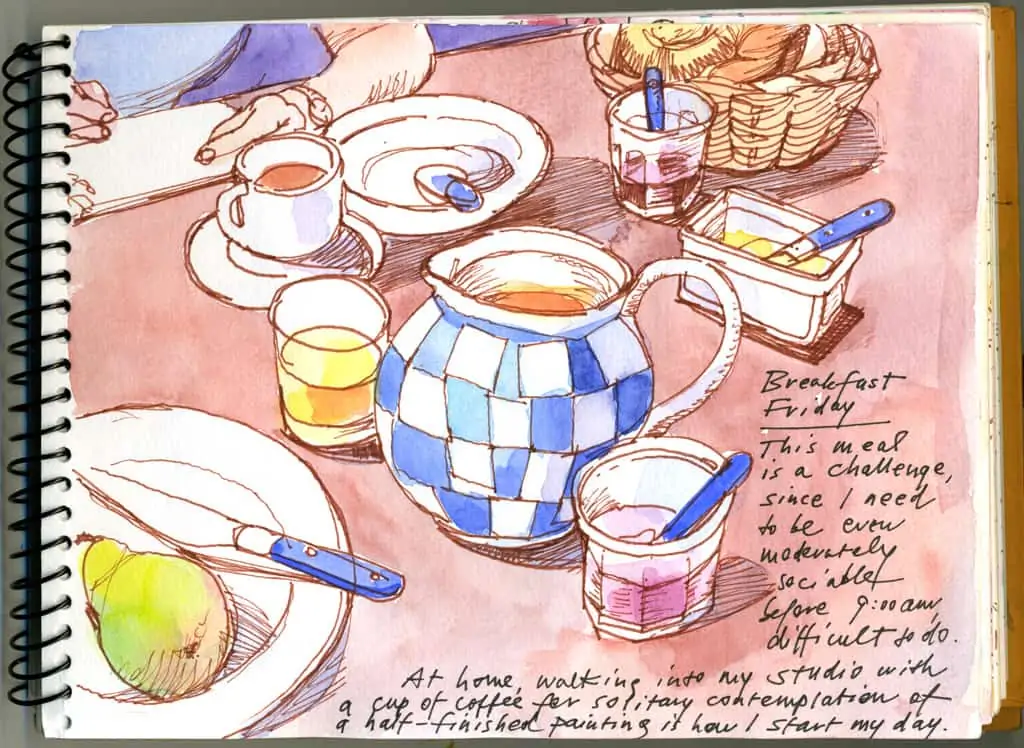 Breakfast
Friday
This meal
is a challenge,
since I need
to be even
moderately
sociable
before 9:00 am,
difficult to do.
At home, walking into my studio with
a cup of coffee for solitary contemplation of
a half-finished painting is how I start my day.